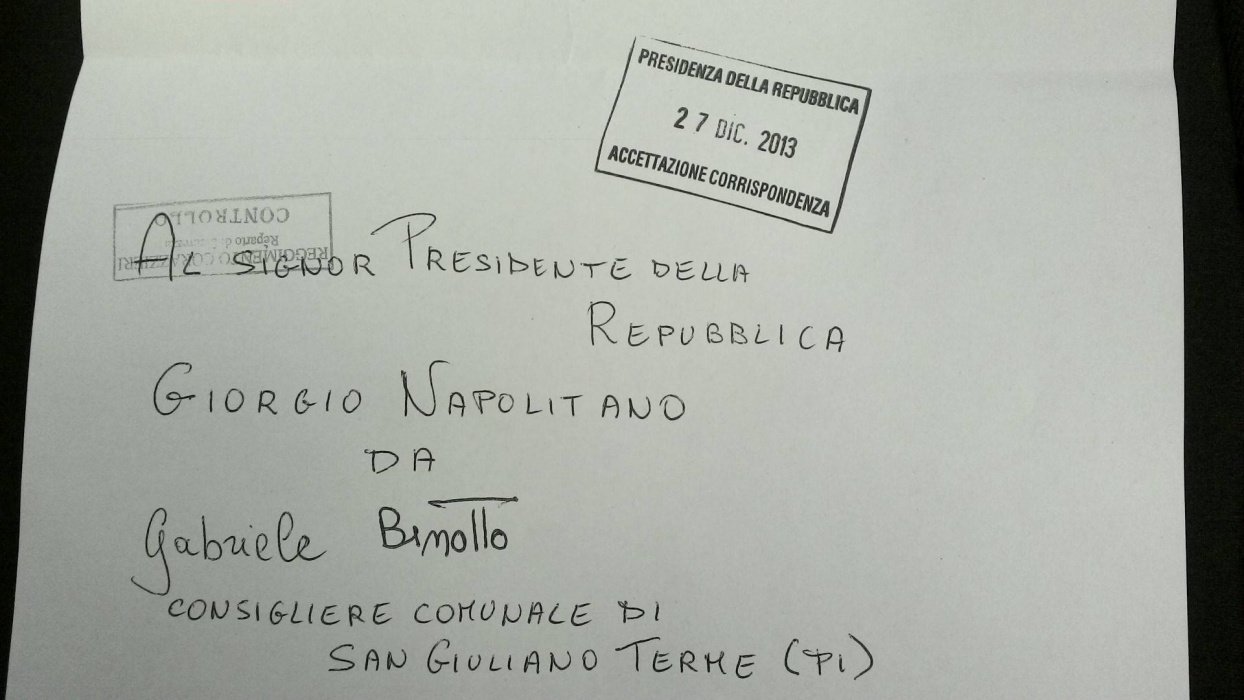 PRESIDENZA DELLA REPUBBLICA
27 DIC. 2013
ACCETTAZIONE CORRISPONDENZA
CONTROLLO
Reparto di
REGGIMENTO CORAZZIERI
AL SIGNOR PRESIDENTE DELLA
REPUBBLICA
GIORGIO NAPOLITANO
DA
Gabriele Benotto
CONSIGLIERE COMUNALE DI
SAN GIULIANO TERME (PI)